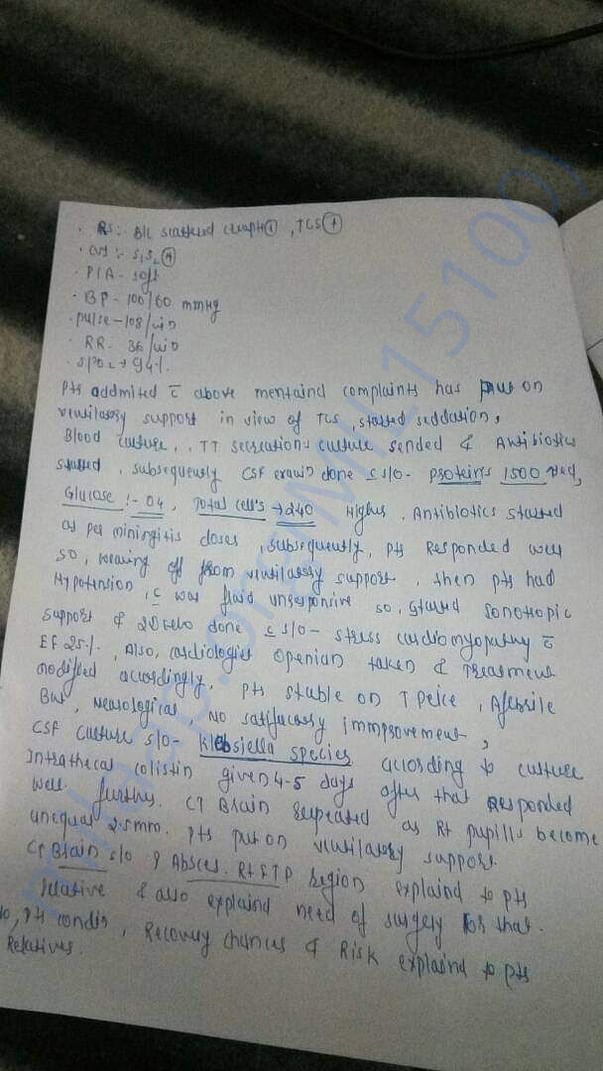 RS :- B/L scattered crept⊕, TCS⊕
CVS :- S1S2⊕
P/A - soft
BP - 100/60 mmHg
pulse - 108/min
RR - 36/min
SPO2 → 94%
Pts addmited c̄ above mentaind complaints has put on
ventilatory support in view of TCS, started seddation,
Blood culture, TT secreations culture sended & Antibiotics
started, subsequently CSF exam done c̄ s/o - proteins 1500
Glucose :- 04, Total cells → 240 Higher, Antibiotics started
as per miningitis doses, subsequently, pts Responded well
so, weaning off from ventilatory support, then pts had
Hypotension, c̄ was fluid unresponsive so, started Ionotropic
support & 2D echo done c̄ s/o - stress cardiomyopathy c̄
EF 25%, Also, cardiologist openian taken & Treatment
modified accordingly, pts stable on T peice, Afebrile
But, neurological, no satifactory immprovement,
CSF culture s/o - Klebsiella species according to culture
Intrathecal colistin given 4-5 days after that Responded
well. further, CT Brain Repeated as Rt pupills become
unequal 2.5mm. Pts put on ventilatory support
CT Brain s/o ? Absces. Rt FTP region explaind to pts
relative & also explaind need of surgery for that.
so, Pts condin, Recovery chances & Risk explaind to pts
Relatives.